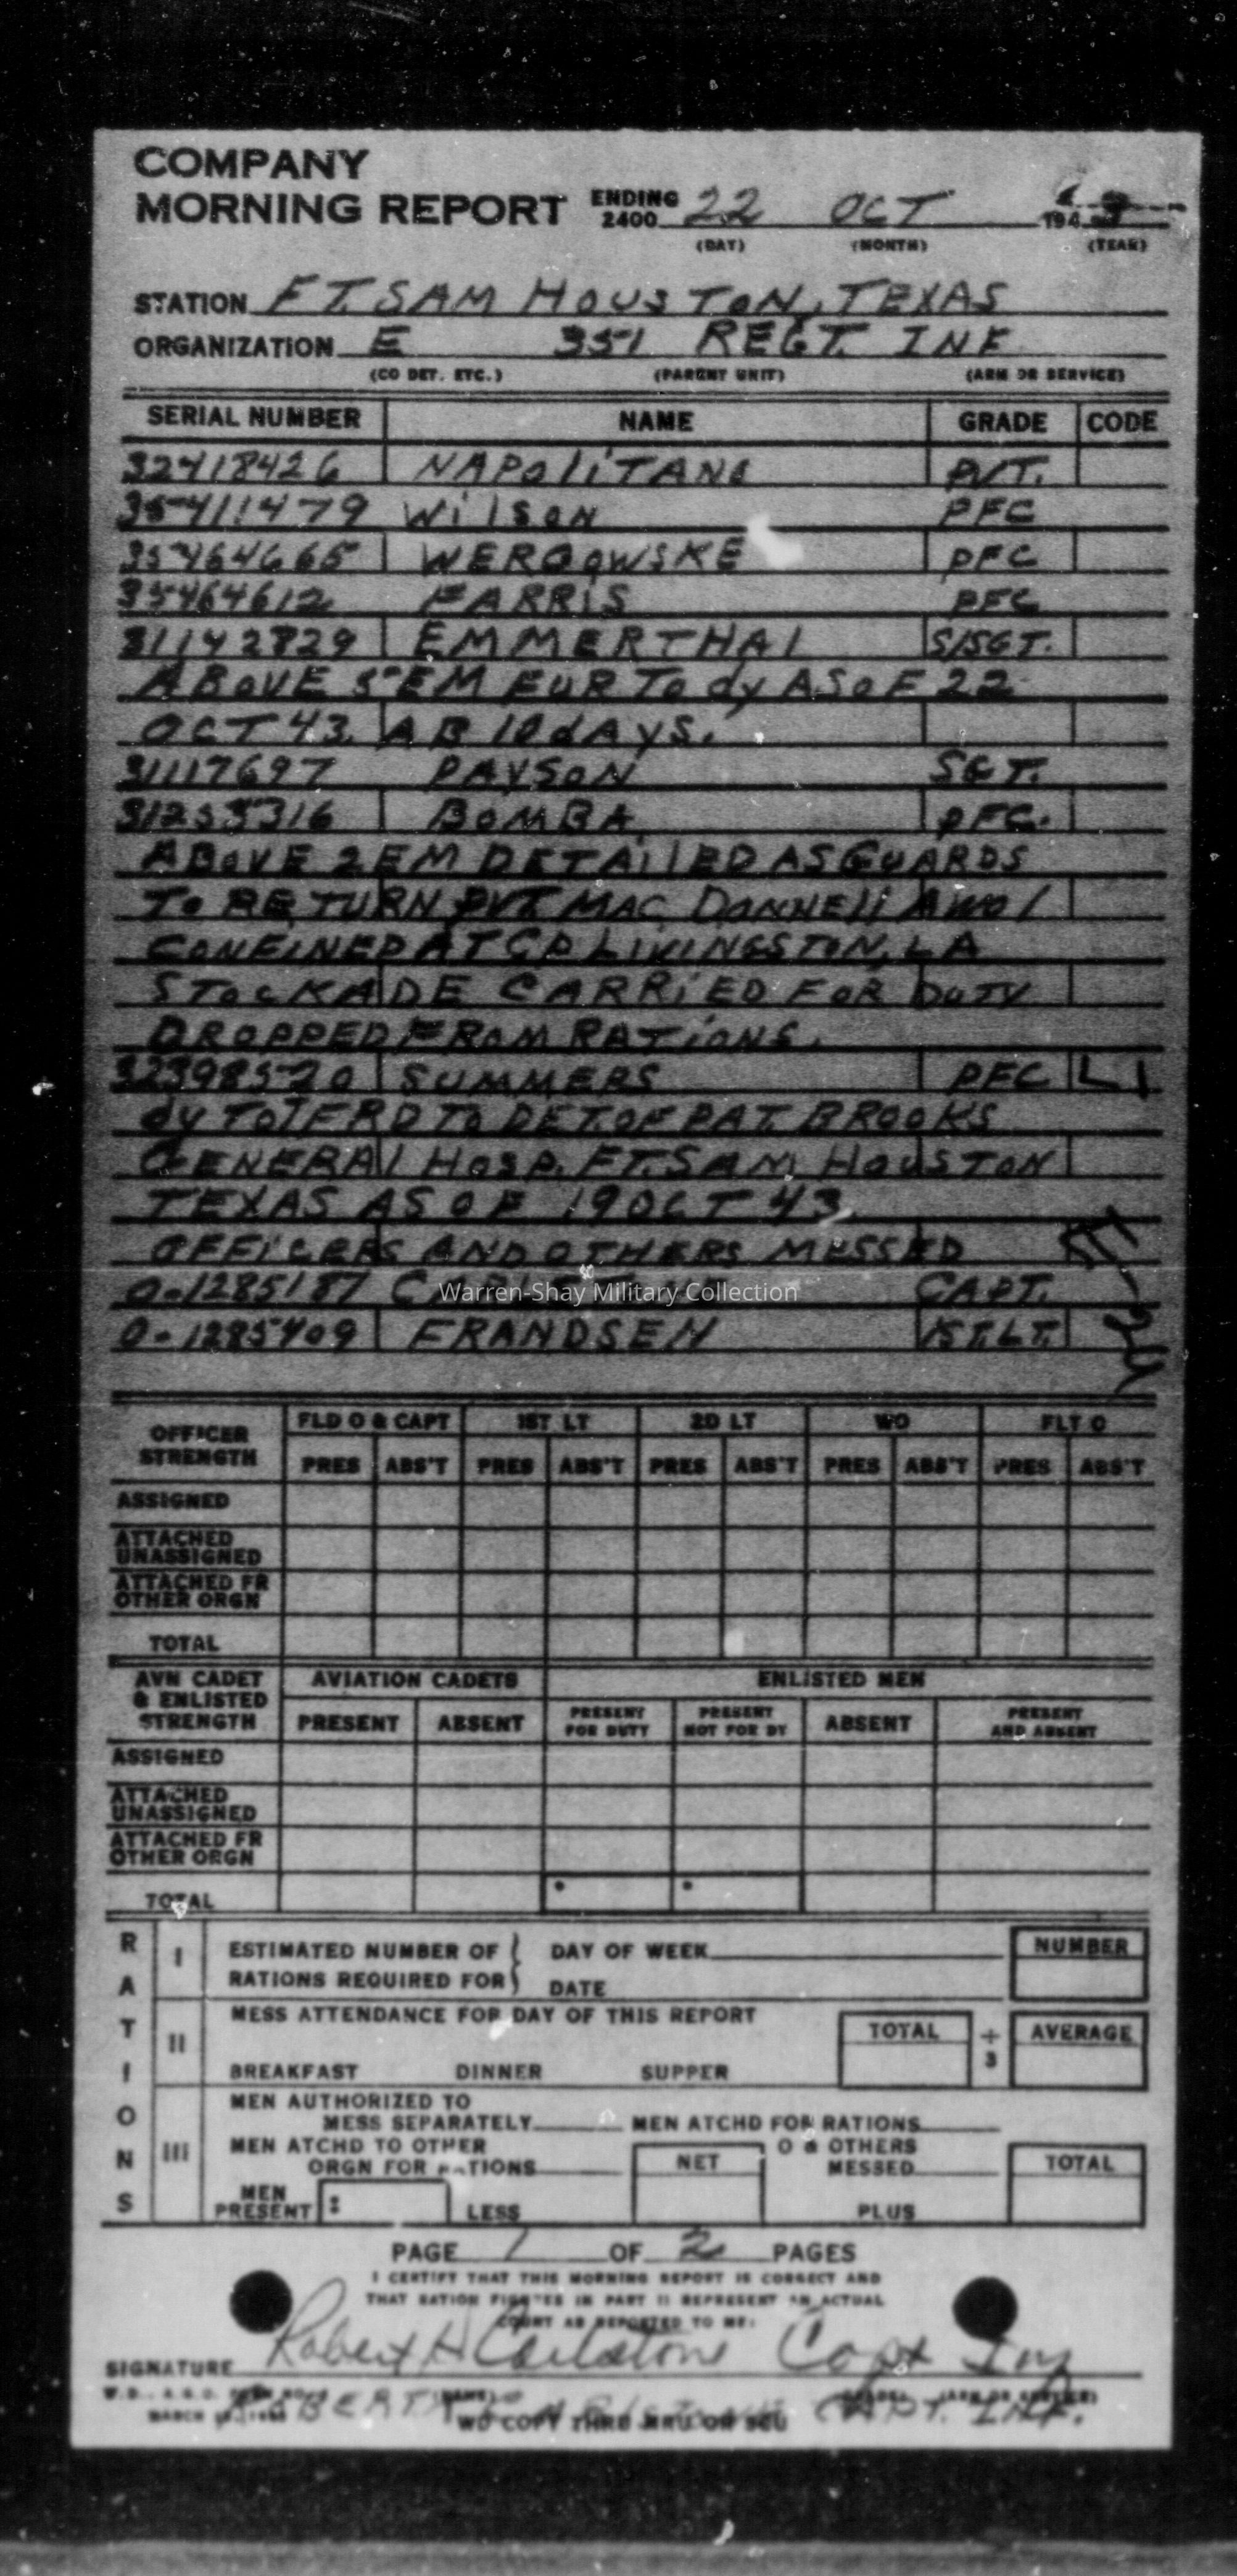 COMPANY
MORNING REPORT ENDING 2400 22 OCT 194 3
(DAY) (MONTH) (YEAR)
STATION FT. SAM HOUSTON, TEXAS
ORGANIZATION E 351 REGT. INF
(CO DET. ETC.) (PARENT UNIT) (ARM OR SERVICE)
SERIAL NUMBER NAME GRADE CODE
32418426 NAPOLITANO PVT.
35411479 WILSON PFC
35464665 WERGOWSKE PFC
35464612 FARRIS PFC
31142829 EMMERTHAL S/SGT.
ABOVE 5 EM FUR TO dy AS OF 22
OCT 43. AB 10 dAyS.
31117697 PAYSON SGT.
31255316 BOMBA PFC.
ABOVE 2 EM DETAILED AS GUARDS
TO RETURN PVT MAC DONNELL AWOL
CONFINED AT CP LIVINGSTON, LA
STOCKADE CARRIED FOR DUTY
DROPPED FROM RATIONS.
32398520 SUMMERS PFC L1
dy TO TFRD TO DET. OF PAT. BROOKS
GENERAL HOSP. FT. SAM HOUSTON
TEXAS AS OF 19 OCT 43
OFFICERS AND OTHERS MESSED
O-1285187 CAPT.
Warren-Shay Military Collection
O-1285409 FRANDSEN 1ST. LT.
OFFICER STRENGTH FLD O & CAPT 1ST LT 2D LT WO FLT O
PRES ABS'T PRES ABS'T PRES ABS'T PRES ABS'T PRES ABS'T
ASSIGNED
ATTACHED UNASSIGNED
ATTACHED FR OTHER ORGN
TOTAL
AVN CADET & ENLISTED STRENGTH AVIATION CADETS ENLISTED MEN
PRESENT ABSENT PRESENT FOR DUTY PRESENT NOT FOR DY ABSENT PRESENT AND ABSENT
ASSIGNED
ATTACHED UNASSIGNED
ATTACHED FR OTHER ORGN
TOTAL
RATIONS
I ESTIMATED NUMBER OF RATIONS REQUIRED FOR DAY OF WEEK NUMBER
DATE
II MESS ATTENDANCE FOR DAY OF THIS REPORT TOTAL ÷ 3 AVERAGE
BREAKFAST DINNER SUPPER
III MEN AUTHORIZED TO
MESS SEPARATELY MEN ATCHD FOR RATIONS
MEN ATCHD TO OTHER ORGN FOR RATIONS NET O & OTHERS MESSED TOTAL
MEN PRESENT : LESS PLUS
PAGE 1 OF 2 PAGES
I CERTIFY THAT THIS MORNING REPORT IS CORRECT AND
THAT RATION FIGURES IN PART II REPRESENT AN ACTUAL
COUNT AS REPORTED TO ME:
SIGNATURE Robert H Carlstone Capt Inf
W.D., A.G.O. (ARM OR SERVICE)
CAPT. INF.
WD COPY THRU MRU OR SCU